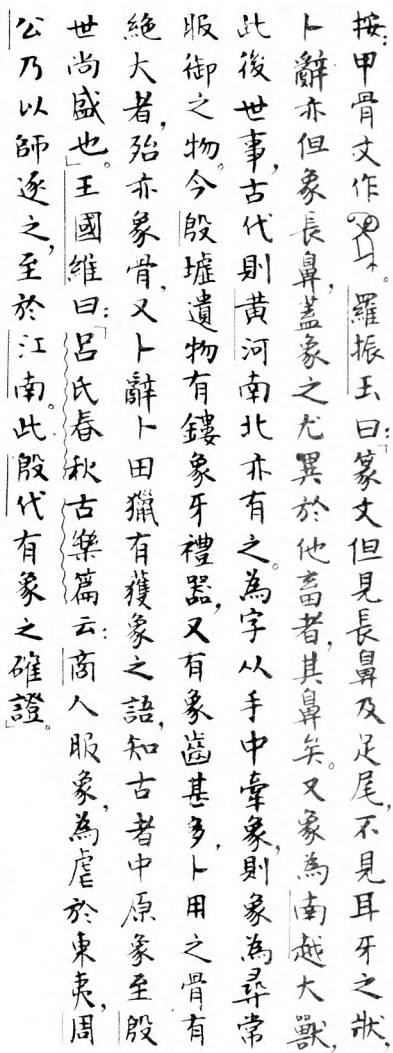 按：甲骨文作。羅振玉曰：「篆文但見長鼻及足尾，不見耳牙之狀，
卜辭亦但象長鼻，蓋象之尤異於他畜者，其鼻矣。又象為南越大獸，
此後世事，古代則黃河南北亦有之。為字从手中牽象，則象為尋常
服御之物。今殷墟遺物有鏤象牙禮器，又有象齒甚多，卜用之骨有
絕大者，殆亦象骨，又卜辭卜田獵有獲象之語，知古者中原象至殷
世尚盛也。」王國維曰：「呂氏春秋古樂篇云：商人服象，為虐於東夷，周
公乃以師逐之，至於江南。此殷代有象之確證。」